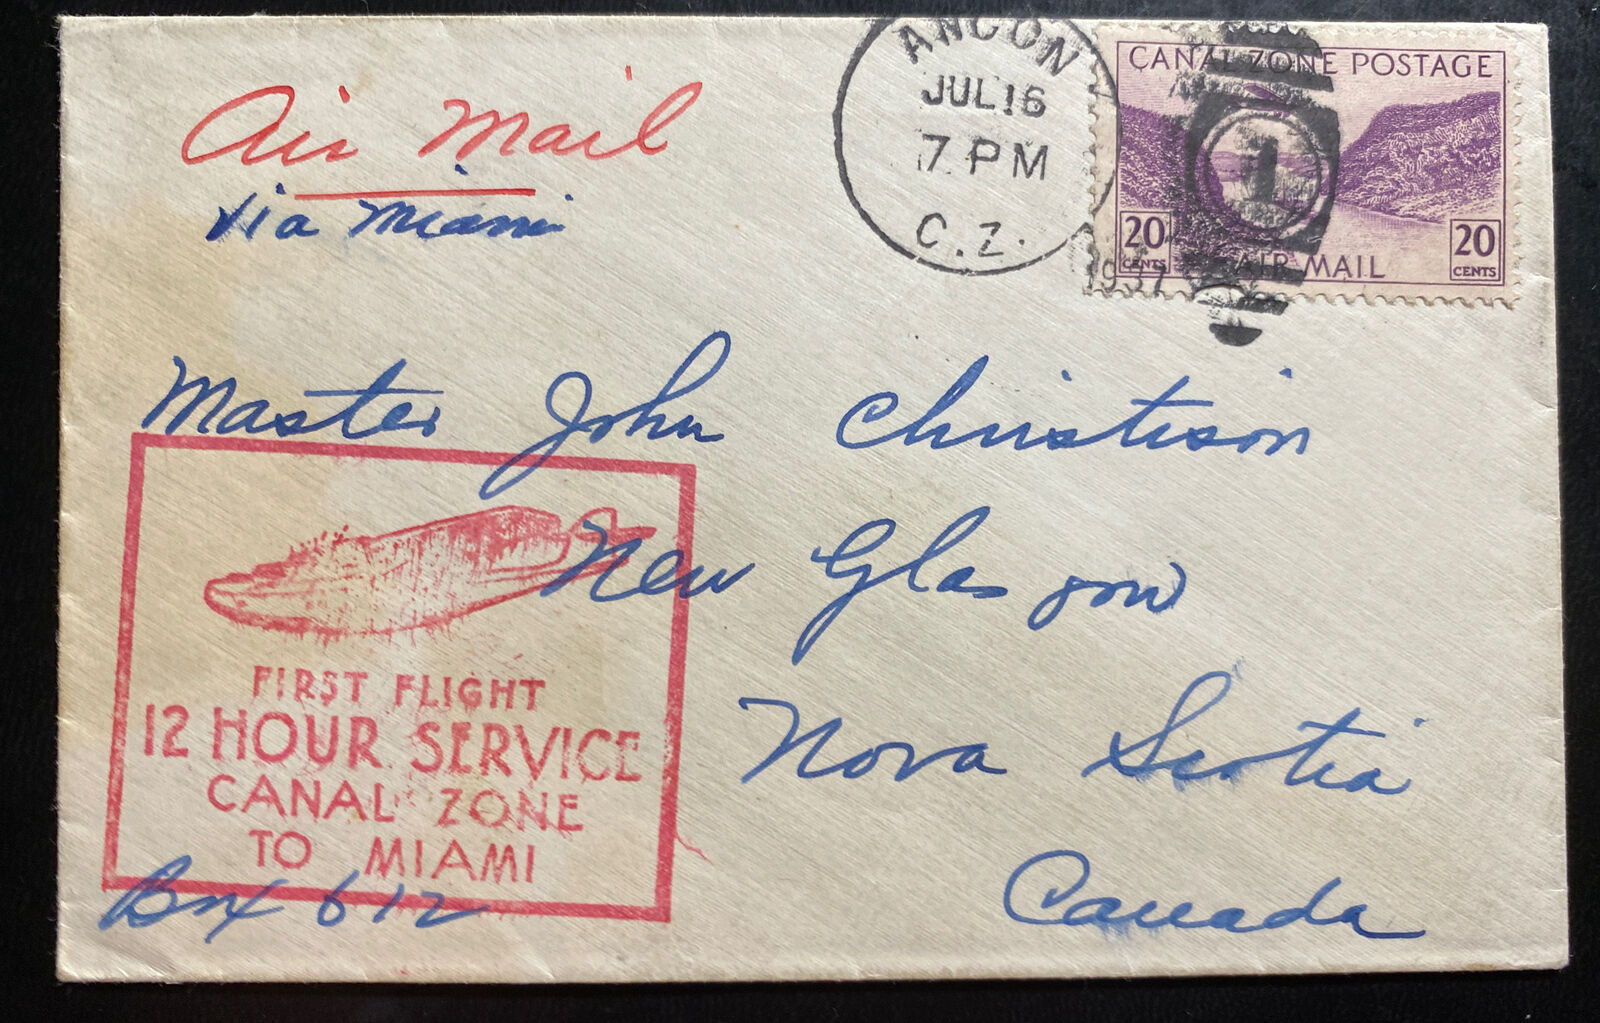 Air Mail
via Miami
ANCON
JUL 16
7 PM
C. Z.
1937
CANAL ZONE POSTAGE
1
20 CENTS
AIR MAIL
20 CENTS
Master John Christison
New Glasgow
Nova Scotia
Canada
FIRST FLIGHT
12 HOUR SERVICE
CANAL ZONE
TO MIAMI
Box 612